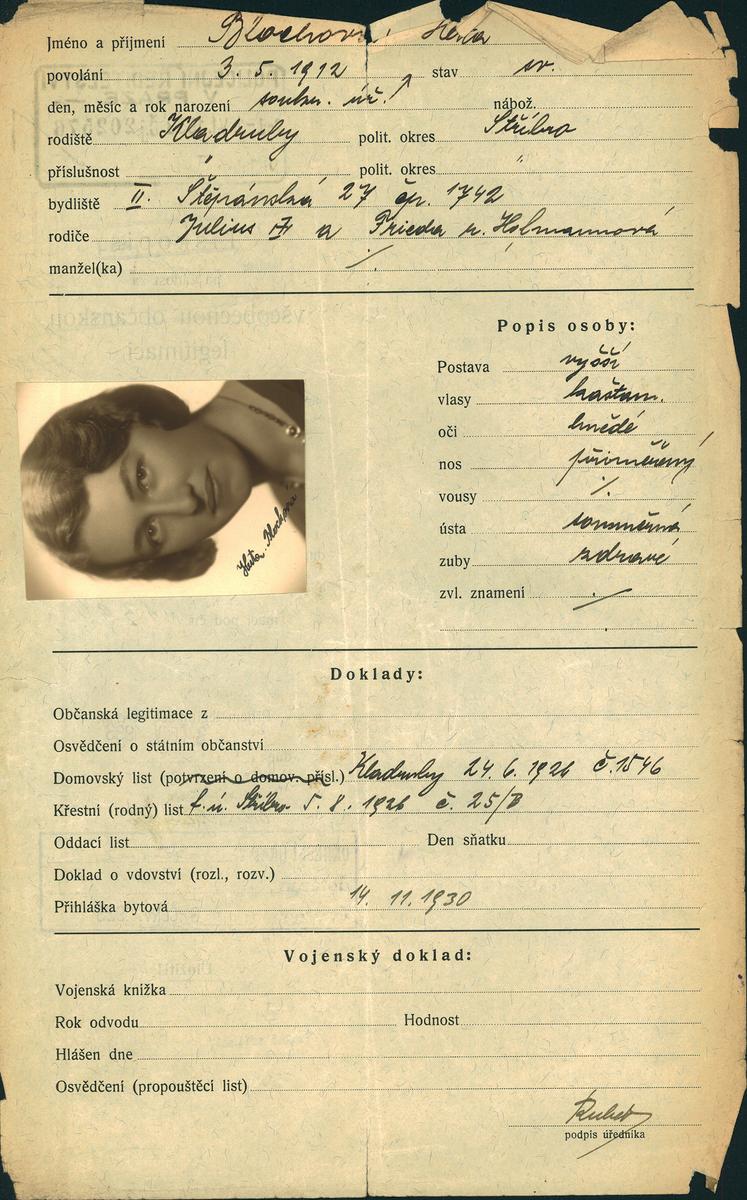 Jméno a příjmení Blochová Herta
povolání 3. 5. 1912 stav sv.
den, měsíc a rok narození soukr. úř. nábož.
rodiště Kladruby polit. okres Stříbro
příslušnost " polit. okres "
bydliště II. Štěpánská 27 čp. 1742
rodiče Julius a Frieda r.
manžel(ka) ⁒
Popis osoby:
Postava vyšší
vlasy kaštan.
oči hnědé
nos přiměřený
vousy ⁒
ústa souměrná
zuby zdravé
zvl. znamení ⁒
Herta Blochová
Doklady:
Občanská legitimace z
Osvědčení o státním občanství
Domovský list (potvrzení o domov. přísl.) Kladruby 24. 6. 1926 č. 1546
Křestní (rodný) list f. ú. Stříbro 5. 8. 1926 č. 25/
Oddací list Den sňatku
Doklad o vdovství (rozl., rozv.)
Přihláška bytová 14. 11. 1930
Vojenský doklad:
Vojenská knížka
Rok odvodu Hodnost
Hlášen dne
Osvědčení (propouštěcí list)
podpis úředníka